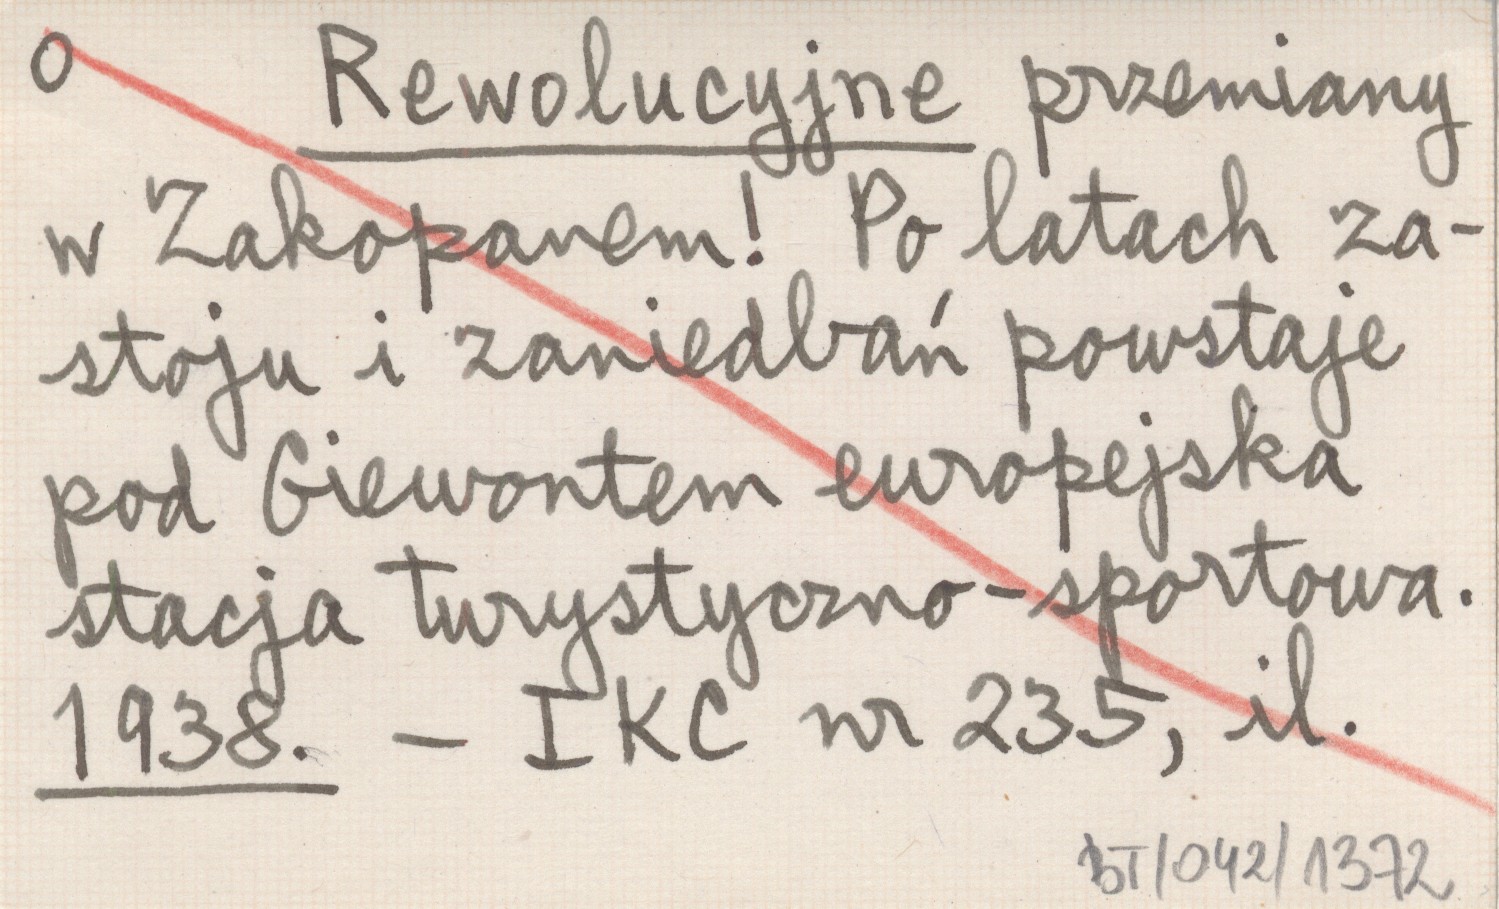 O Rewolucyjne przemiany
w Zakopanem! Po latach za-
stoju i zaniedbań powstaje
pod Giewontem europejska
stacja turystyczno-sportowa.
1938. – IKC nr 235, il.
BT/042/1372